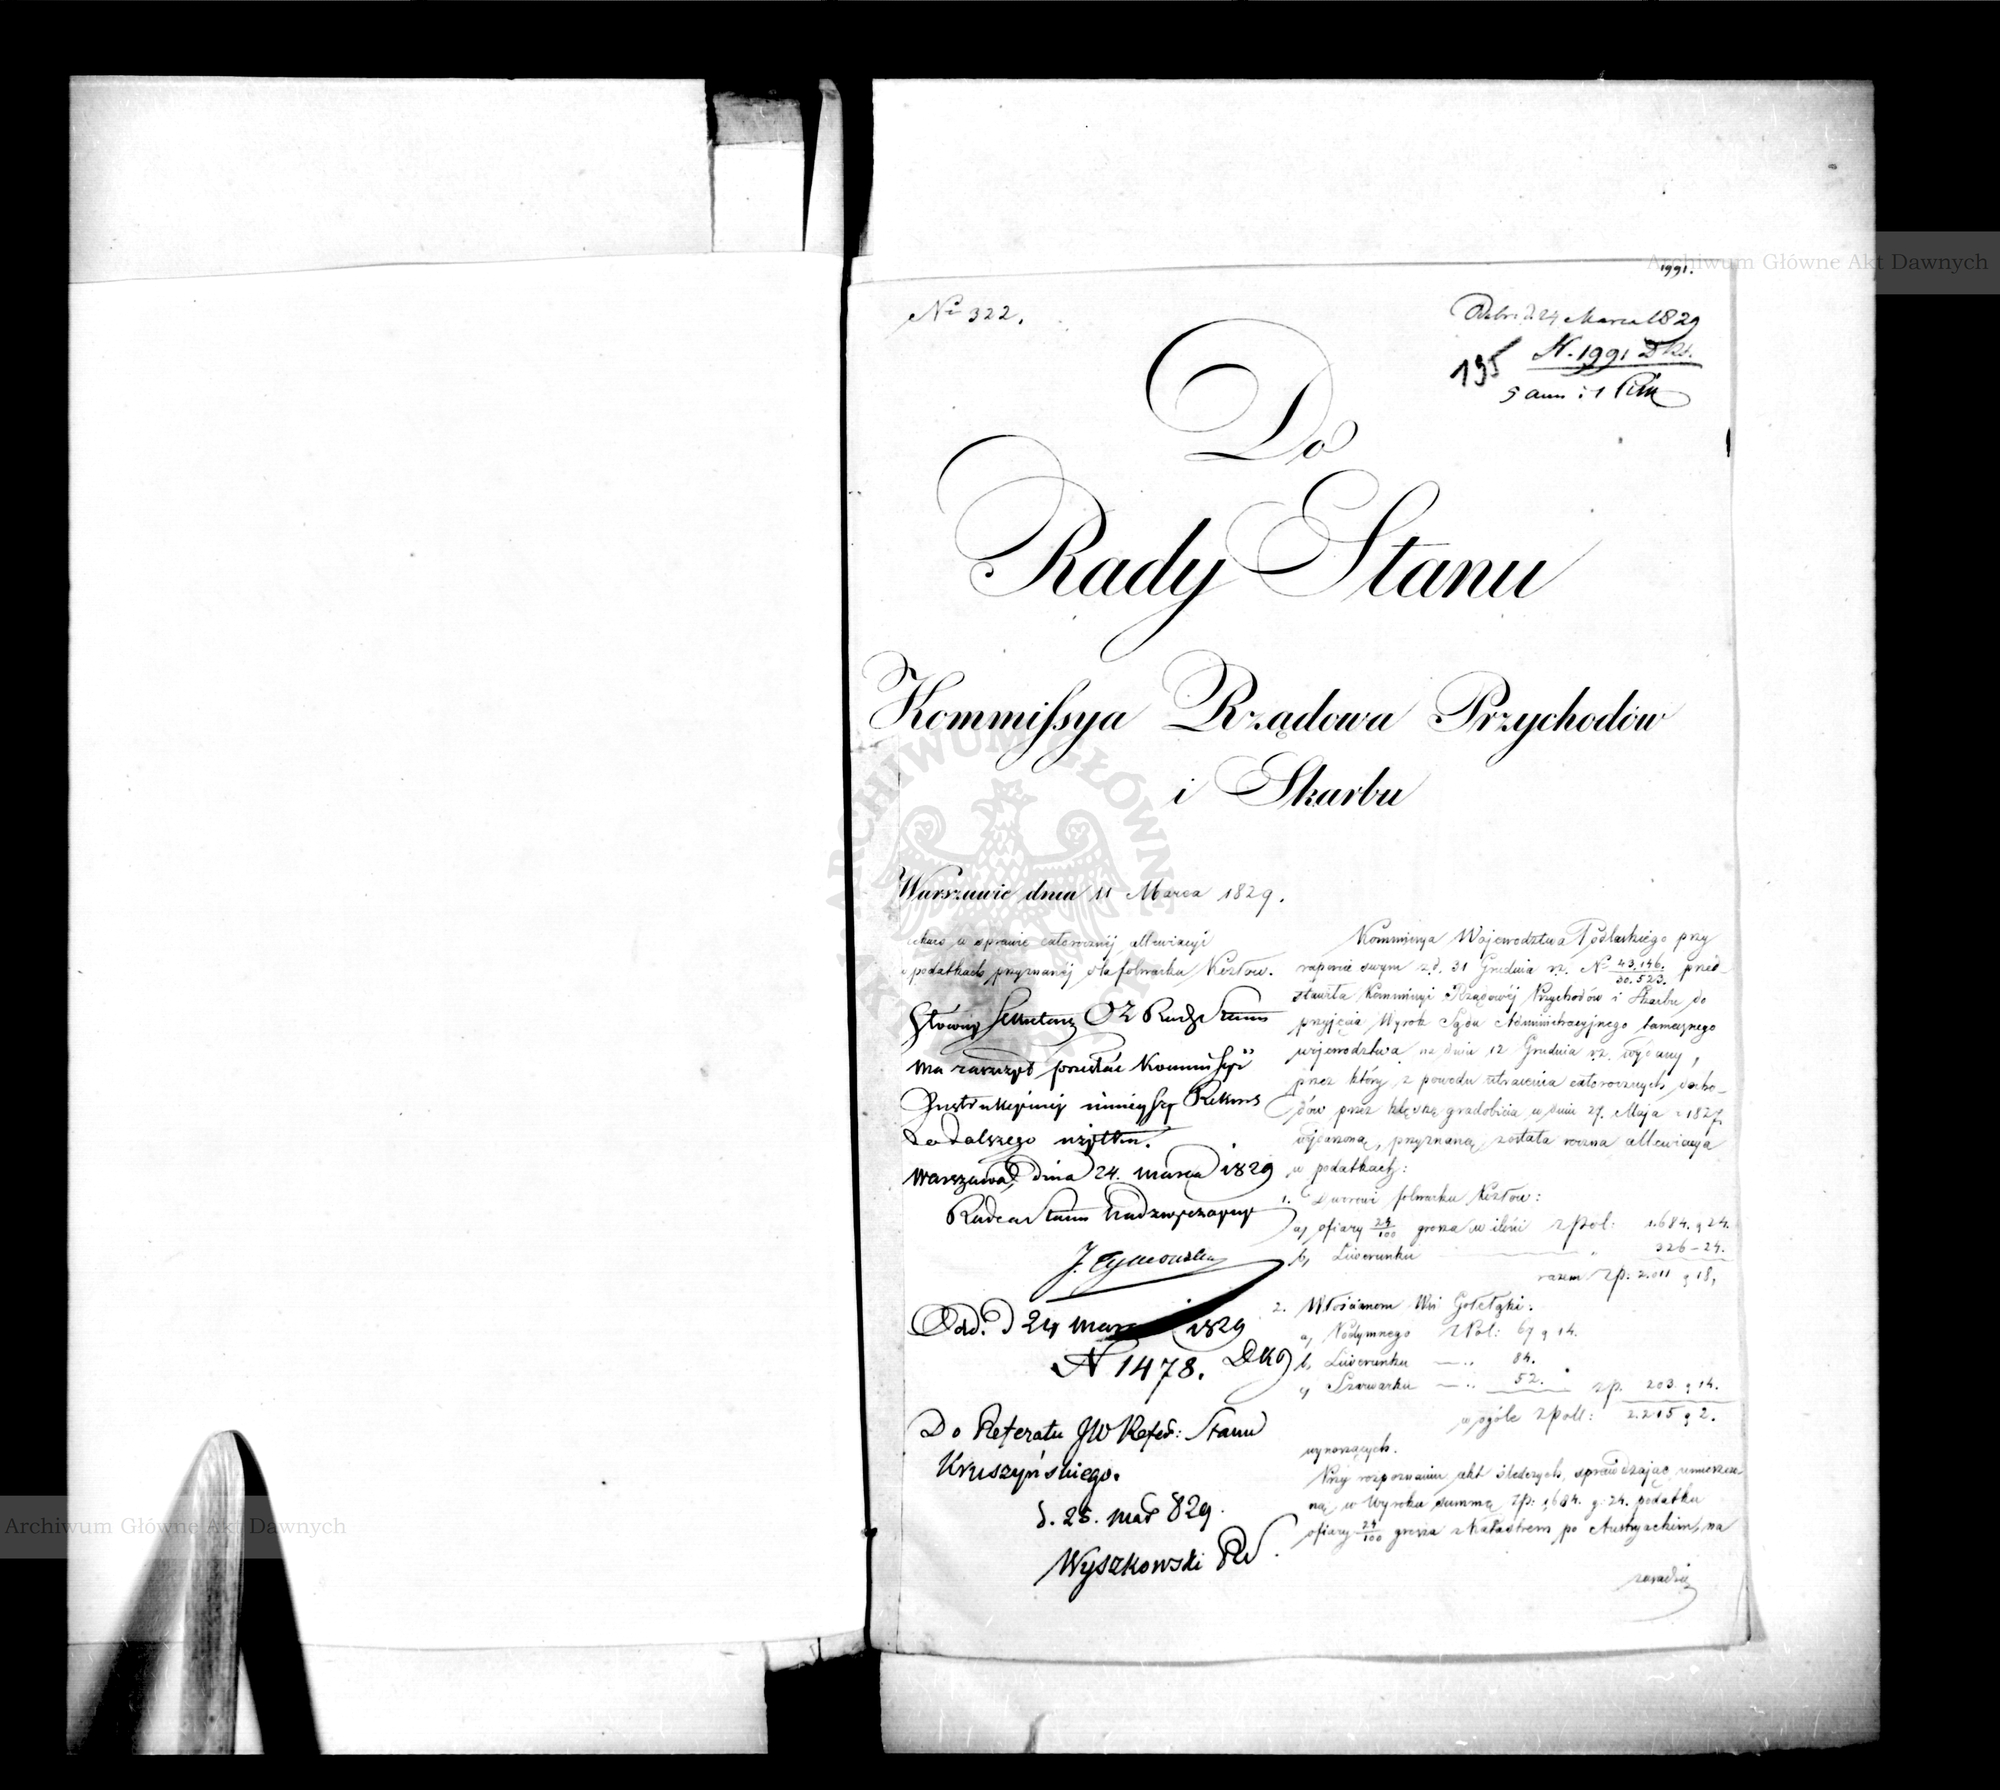 1991.
№ 322.
Odebr. d. 24 Marca 1829
N. 1991 DKS.
195
5 ann: i 1
Do
Rady Stanu
Kommissya Rządowa Przychodów
i Skarbu
Warszawie dnia 11 Marca 1829.
w sprawie całorocznéj allewiacyi
podatkach przyznanéj dla folwarku Kozłów.
Główny Sekretarz Rady Stanu
ma zarządzić przesłać Kommissyi
Instrukcyinéj ninieyszy Rekurs
do dalszego użytku.
Warszawa dnia 24. marca 1829
Radca Stanu Nadzwyczayny
J. Tymowski
Odd. d 24 marca 1829
N 1478. DKS
Do Referatu JW Refer: Stanu
Kruszyńskiego.
d. 25. mar 829.
Wyszkowski
Kommissya Województwa Podlaskiego przy
raporcie swym z d. 31 Grudnia r.z. № 43,146./30,523. przed-
stawiła Kommissyi Rządowéj Przychodów i Skarbu do
przyjęcia Wyrok Sądu Administracyjnego tamecznego
województwa na dniu 12 Grudnia r.z. wydany,
przez który, z powodu utracenia całorocznych docho-
dów przez klęskę gradobicia w dniu 27. Maja r. 1827
przyznaną została roczna allewiacya
w podatkach:
1. Dworowi folwarku Kozłów:
a) ofiary 24/100 grosza w ilości zł pol: 1.684. g 24.
b) Liwerunku „ 326 – 24.
razem zł p: 2.011 g 18,
2. Włościanom Wsi Gołełąki:
a) Podymnego zł Pol: 67 g 14.
b, Liwerunku — „ 84.
c) Szarwarku — „ 52. zł p. 203. g 14.
w ogóle zł poll: 2.215 g 2.
wynoszących.
Przy rozpoznaniu akt śledczych, sprawdzając umieszczo-
ną w Wyroku summę Złp: 1,684. g. 24. podatku
ofiary 24/100 grosza z Katastrem po Austryackim, na
zasadzie
Archiwum Główne Akt Dawnych
Archiwum Główne Akt Dawnych
ARCHIWUM GŁÓWNE AKT DAWNYCH